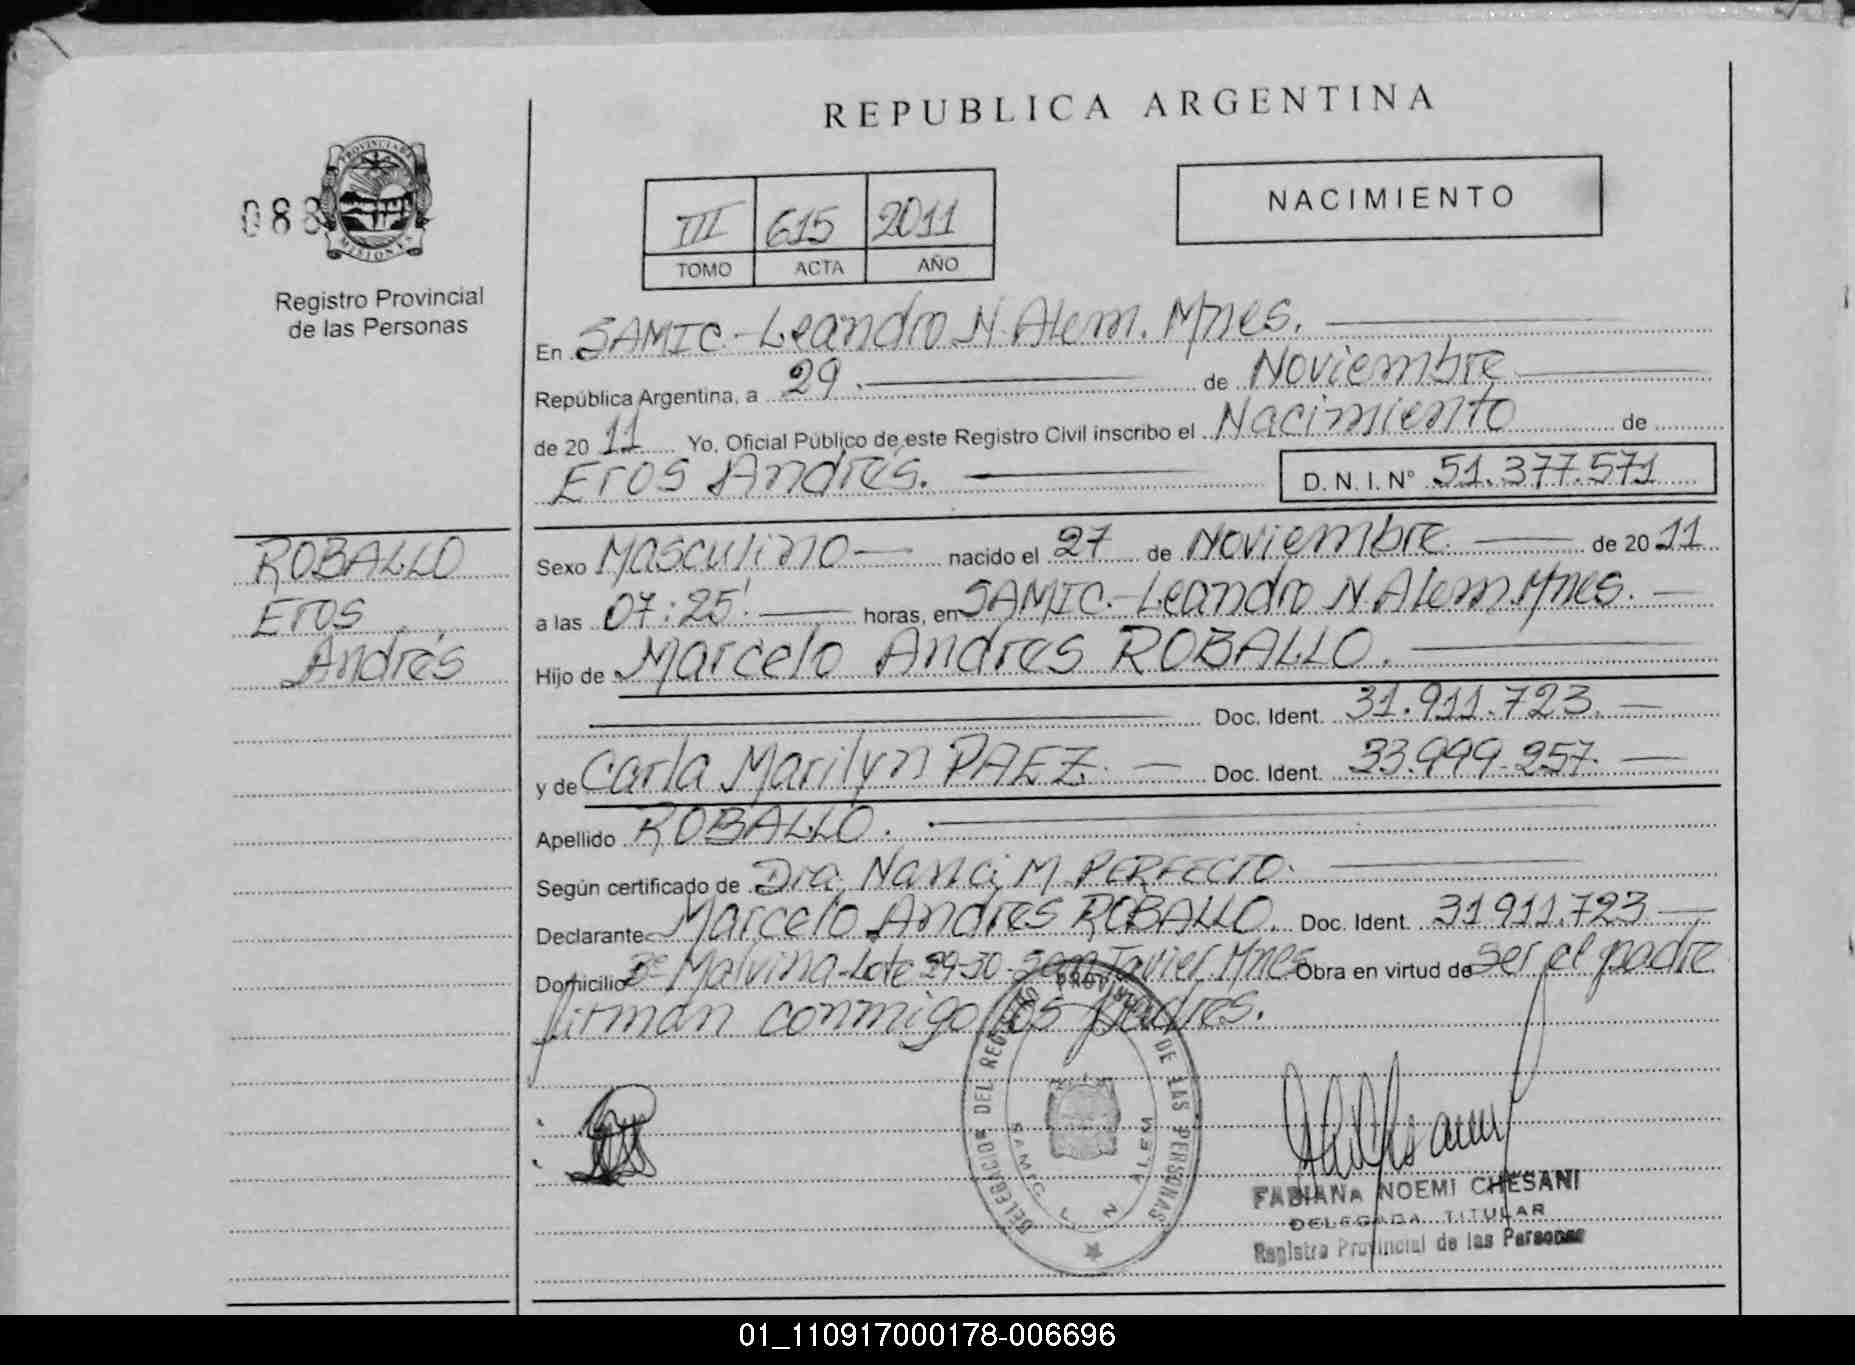 REPUBLICA ARGENTINA
PROVINCIA DE
MISIONES
088
Registro Provincial
de las Personas
III 615 2011
TOMO ACTA AÑO
NACIMIENTO
En SAMIC.-Leandro N. Alem. Mnes.
República Argentina, a 29. de Noviembre
de 20 11 Yo, Oficial Público de este Registro Civil inscribo el Nacimiento de
Eros Andrés. D. N. I. Nº 51.377.571
ROBALLO
Eros
Andrés
Sexo Masculino nacido el 27 de Noviembre de 20 11
a las 07:25' horas, en SAMIC.-Leandro N. Alem. Mnes.
Hijo de Marcelo Andres ROBALLO.
Doc. Ident. 31.911.723.
y de Carla Marilyn PAEZ. Doc. Ident. 33.999.257.
Apellido ROBALLO.
Según certificado de Dra. Nanci M. PERFECTO.
Declarante Marcelo Andres ROBALLO. Doc. Ident. 31911.723
Domicilio Bº Malvina-Lote 29-30-San Javier. Mnes Obra en virtud de ser el padre
firman conmigo los padres.
DELEGACION DEL REGISTRO PROVINCIAL DE LAS PERSONAS
SAMIC L N ALEM
FABIANA NOEMI CHESANI
DELEGADA TITULAR
Registro Provincial de las Personas
01_110917000178-006696